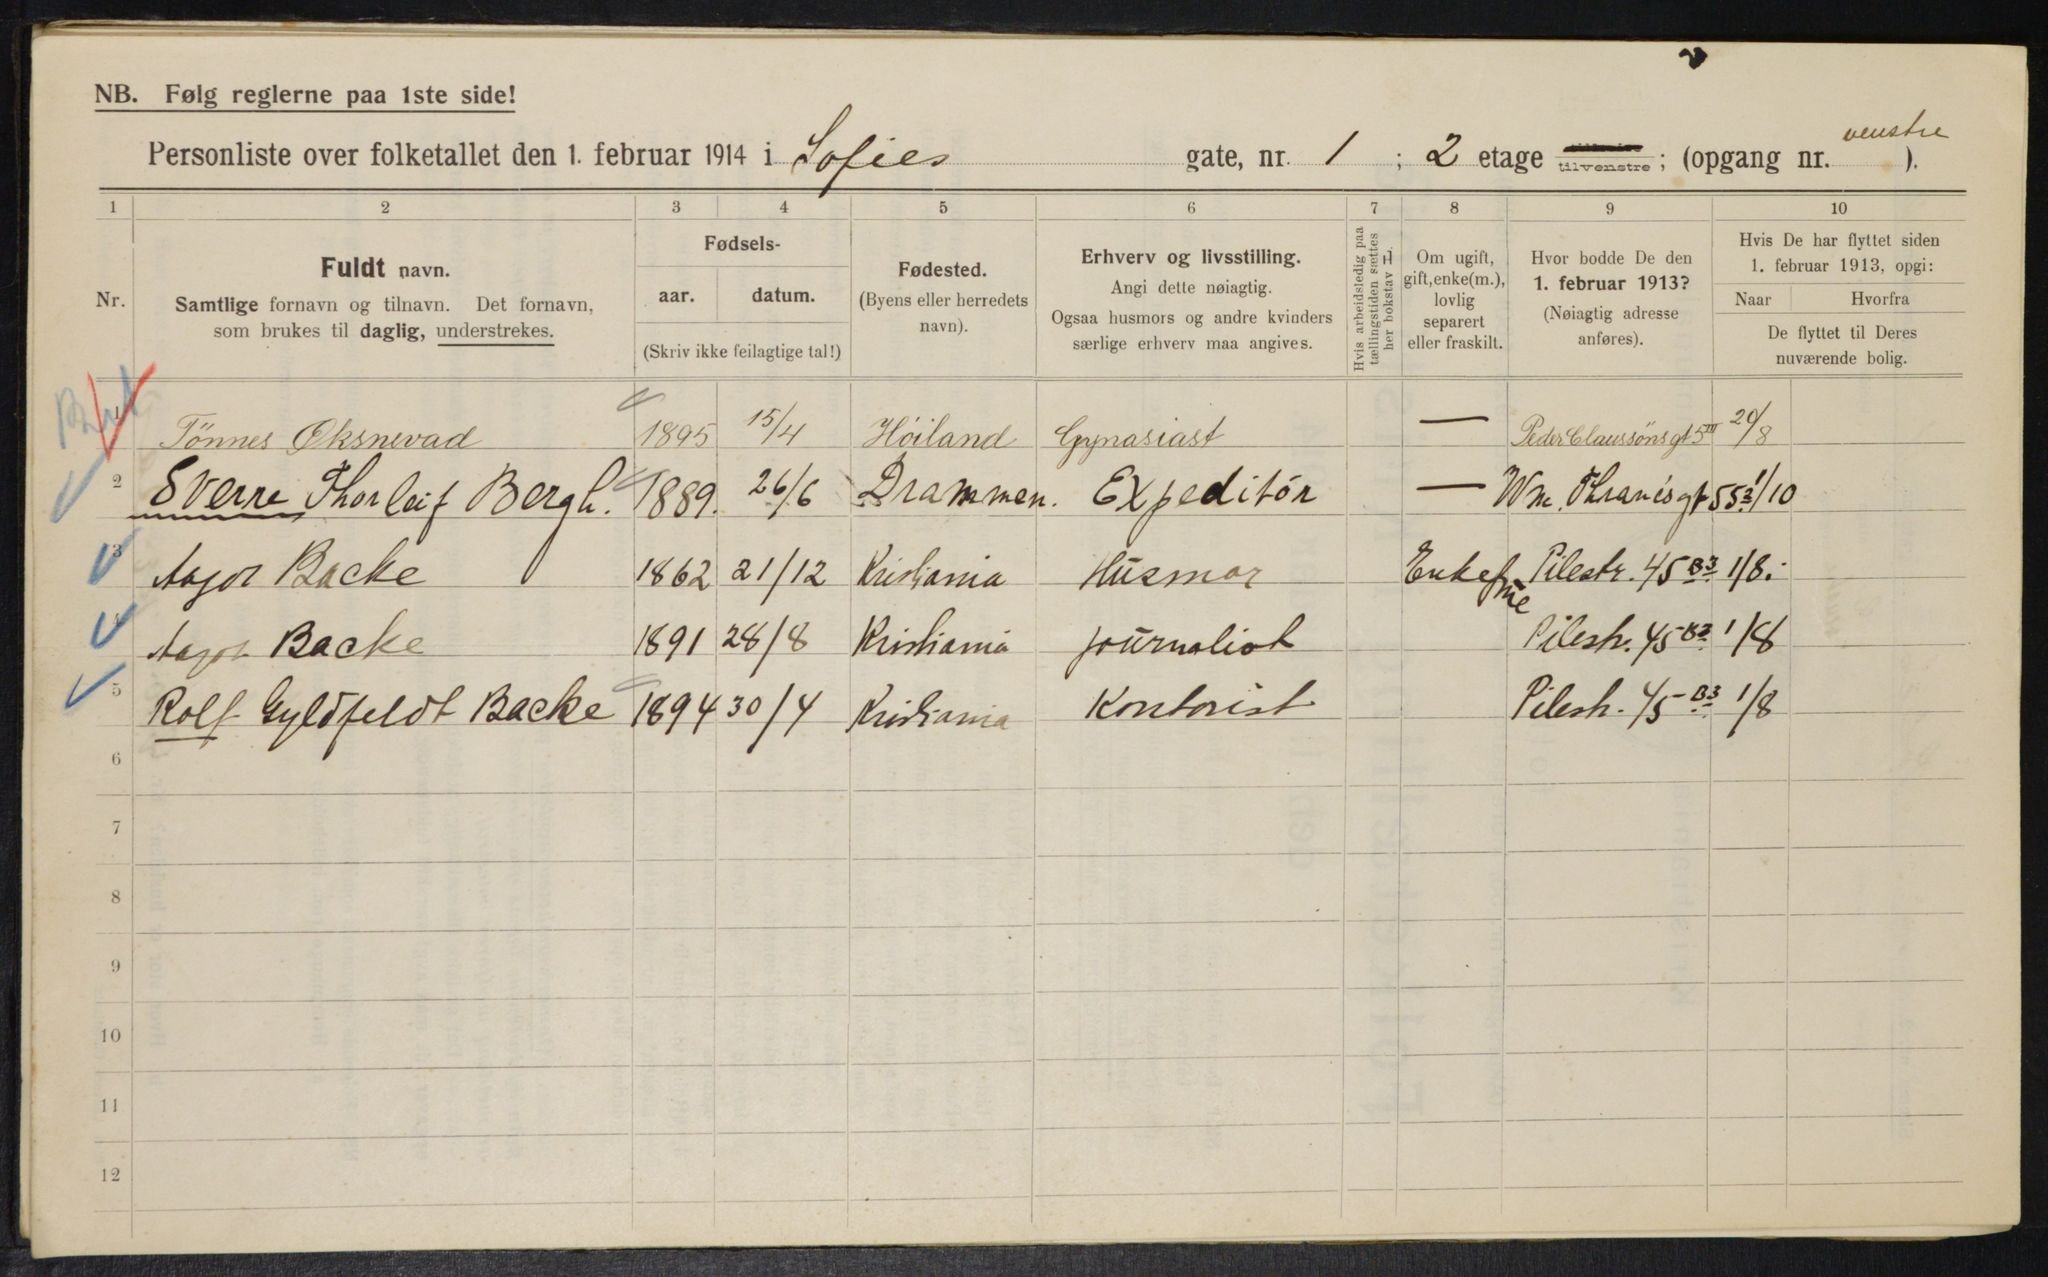 NB. Følg reglerne paa 1ste side!
venstre
Personliste over folketallet den 1. februar 1914 i Sofies gate, nr. 1 ; 2 etage tilvenstre ; (opgang nr. ).
1 2 3 4 5 6 7 8 9 10
Nr.
Fuldt navn.
Samtlige fornavn og tilnavn. Det fornavn,
som brukes til daglig, understrekes.
Fødsels-
aar. datum.
(Skriv ikke feilagtige tal!)
Fødested.
(Byens eller herredets
navn).
Erhverv og livsstilling.
Angi dette nøiagtig.
Ogsaa husmors og andre kvinders
særlige erhverv maa angives.
Hvis arbeidsledig paa
tællingstiden sættes
her bokstav L.
Om ugift,
gift, enke(m.),
lovlig
separert
eller fraskilt.
Hvor bodde De den
1. februar 1913?
(Nøiagtig adresse
anføres).
Hvis De har flyttet siden
1. februar 1913, opgi:
Naar Hvorfra
De flyttet til Deres
nuværende bolig.
1 Tönnes Øksnevad 1895 15/4 Høiland Gynasiast — Peder Claussönsgt 5 III 20/8
2 Sverre Thorleif Bergh. 1889. 26/6 Drammen. Expeditör — Wm. Thranesgt 55 3 1/10
3 Aagot Backe 1862 21/12 Kristiania Husmor Enkefrue Pilestr. 45 B3 1/8.
4 Aagot Backe 1891 28/8 Kristiania Journalist Pilestr. 45 B3 1/8
5 Rolf Gyldfeldt Backe 1894 30/4 Kristiania Kontorist Pilestr. 45 B3 1/8
6
7
8
9
10
11
12